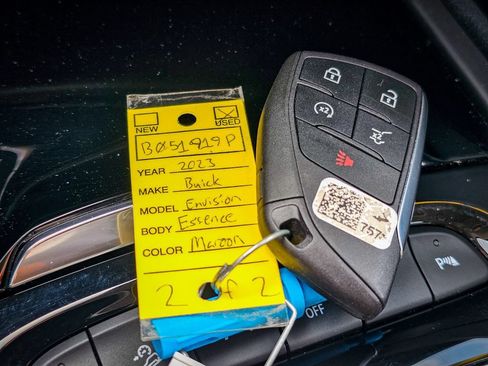 NEW USED
BØ51919P
YEAR 2023
MAKE Buick
MODEL Envision
BODY Essence
COLOR Maroon
2 of 2
x2
757
OFF
P